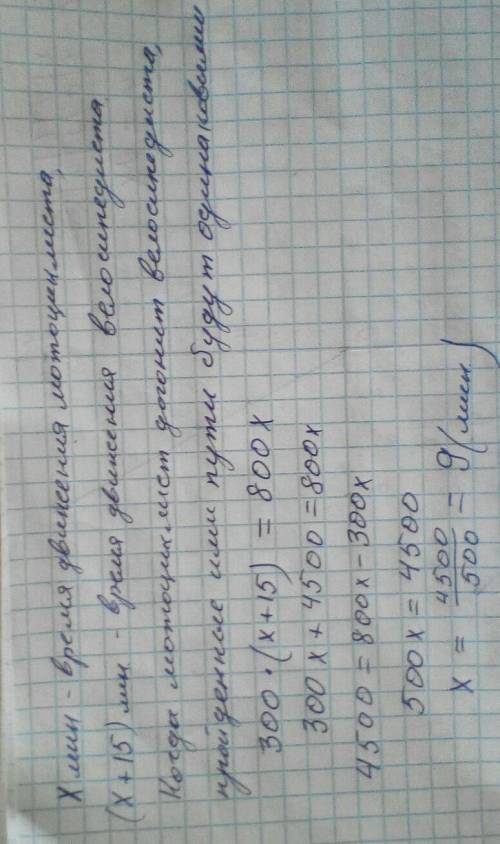 X мин - время движения мотоциклиста,
(x + 15) мин - время движения велосипедиста
Когда мотоциклист догонит велосипедиста,
пройденные ими пути будут одинаковыми
300 · (x + 15) = 800x
300x + 4500 = 800x
4500 = 800x - 300x
500x = 4500
x = 4500/500 = 9 (мин)